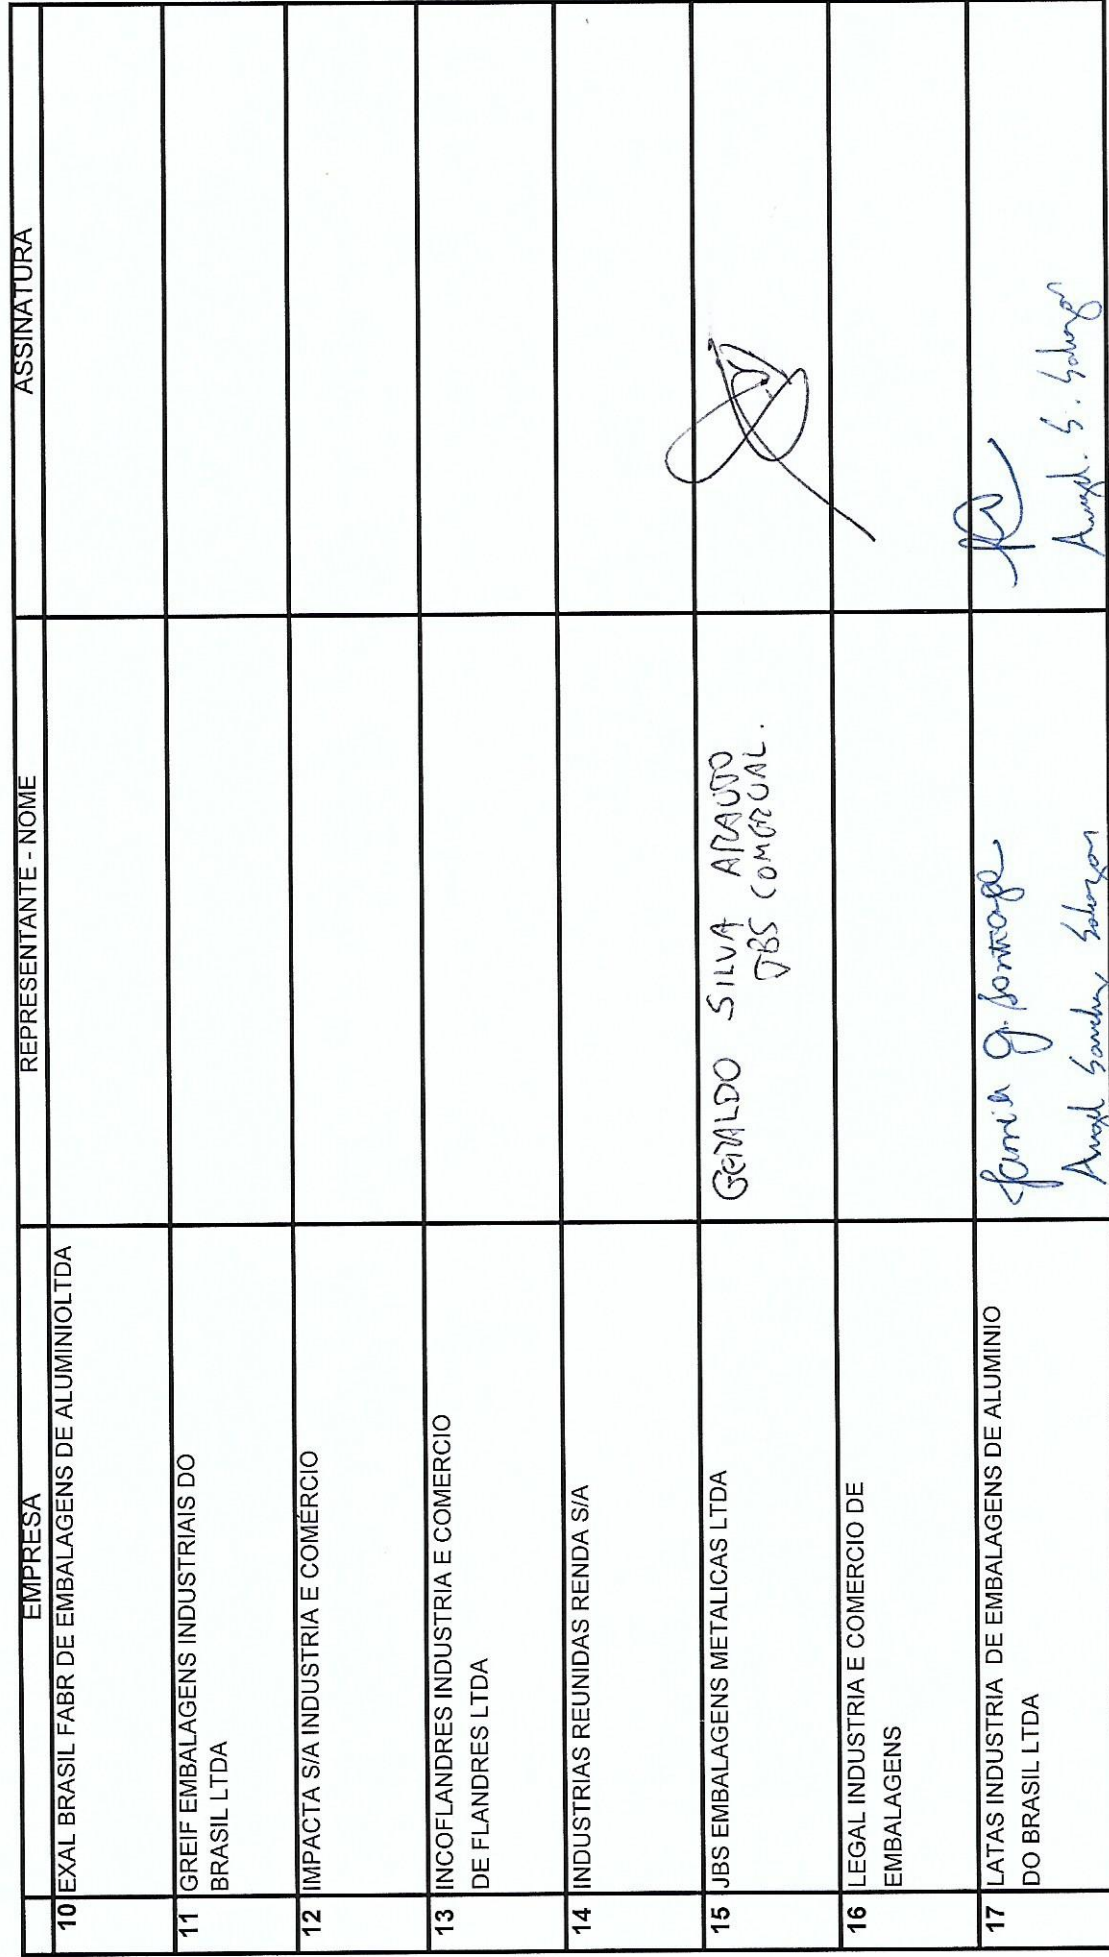 EMPRESA REPRESENTANTE - NOME ASSINATURA
10 EXAL BRASIL FABR DE EMBALAGENS DE ALUMINIOLTDA
11 GREIF EMBALAGENS INDUSTRIAIS DO
BRASIL LTDA
12 IMPACTA S/A INDUSTRIA E COMÉRCIO
13 INCOFLANDRES INDUSTRIA E COMERCIO
DE FLANDRES LTDA
14 INDUSTRIAS REUNIDAS RENDA S/A
15 JBS EMBALAGENS METALICAS LTDA GERALDO SILVA ARAUJO
JBS COMERCIAL.
16 LEGAL INDUSTRIA E COMERCIO DE
EMBALAGENS
17 LATAS INDUSTRIA DE EMBALAGENS DE ALUMINIO
DO BRASIL LTDA